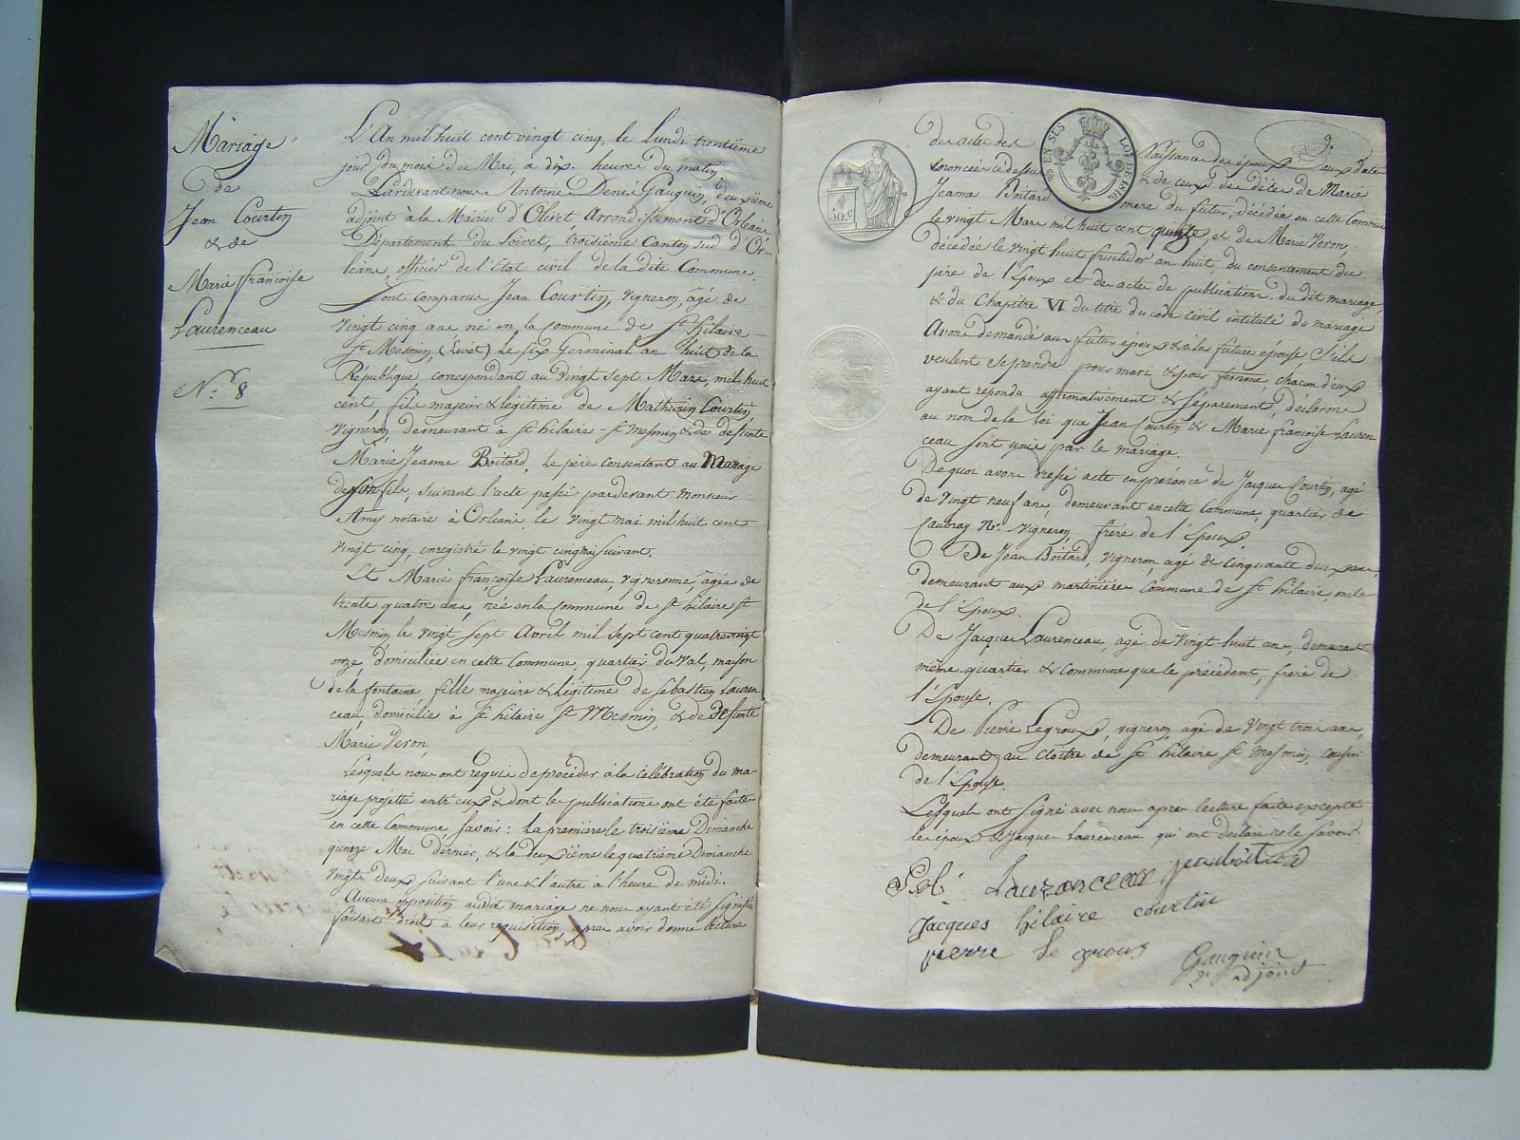 Mariage
de
Jean Courtin
& de
Marie françoise
Laurenceau
N.° 8
L'An mil huit cent vingt cinq, le Lundi trentième
jour du mois de Mai, à dix heures du matin,
Pardevant nous Antoine Denis Gauguin, deuxième
adjoint à la Mairie d'Olivet Arrondissement d'Orléans
Département du Loiret, troisième Canton sud d'Or-
léans, officier de l'état civil de la dite Commune.
Sont comparus Jean Courtin, vigneron, âgé de
vingt cinq ans né en la commune de St hilaire
St Mesmin, (Loiret) le six Germinal an huit de la
République, correspondant au vingt sept Mars, mil huit
cent, fils majeur & légitime de Mathurin Courtin,
vigneron, demeurant à St hilaire - St mesmin & de defunte
Marie Jeanne Boitard, le père consentant au Mariage
de son fils, suivant l'acte passé pardevant monsieur
Amy notaire à Orléans, le vingt mai mil huit cent
vingt cinq, enregistré le vingt cinq mai suivant.
Et Marie françoise Laurenceau, vigneronne, âgée de
trente quatre ans, née en la commune de St hilaire St
Mesmin le vingt sept Avril mil sept cent quatre vingt
onze, domiciliée en cette Commune, quartier du Val, maison
de la fontaine, fille majeure & légitime de sébastien Lauren
ceau, domicilié à St hilaire St Mesmin, & de defunte
Marie Veron,
Lesquels nous ont requis de procéder à la célébration du ma-
riage projetté entr'eux & dont les publications ont été faites
en cette Commune, Savoir: La première le troisième Dimanche
quinze Mai dernier, & la deuxième le quatrième Dimanche
vingt deux suivant l'une & l'autre à l'heure de midi.
Aucune opposition audit mariage ne nous ayant été signifiée
faisant droit à leur requisition, après avoir donné lecture
des actes des Naissances des époux Deux date
énoncées ci dessus & de ceux de décès de Marie
Jeanne Boitard mère du futur, décédée en cette Commune
le vingt Mars mil huit cent quinze, et de Marie Veron,
décédée le vingt huit fructidor an huit, du consentement du
père de l'Epoux et des actes de publications du dit mariage,
& du Chapitre VI du titre du code civil intitulé du mariage
Avons demandé aux futur époux & à la future épouse S'ils
veulent se prendre pour mari & pour femme, chacun d'eux
ayant répondu affirmativement & séparement, déclarons
au nom de la loi que Jean Courtin & Marie françoise Lauren
ceau sont unis par le mariage.
De quoi avons dressé acte en présence de Jacques Courtin, agé
de vingt neuf ans, demeurant en cette Commune, quartier de
Caubray N.° vigneron, frère de l'Epoux
De Jean Boitard, vigneron, agé de cinquante deux ans,
demeurant aux martinières Commune de St hilaire, oncle
de l'Epoux.
De Jacques Laurenceau, agé de vingt huit ans, demeurant
même quartier & commune que le précédent, frère de
l'Epouse.
De Pierre Legroux, vigneron agé de vingt trois ans,
demeurant au Cloitre de St hilaire St Mesmin, cousin
de l'Epouse.
Lesquels ont signé avec nous après lecture faite excepté
les époux & Jacques Laurenceau qui ont déclaré ne le savoir.
Seb. Lauranceau jean boitard
Jacques hilaire courtin
pierre le grous Gauguin
adjoint
50 c